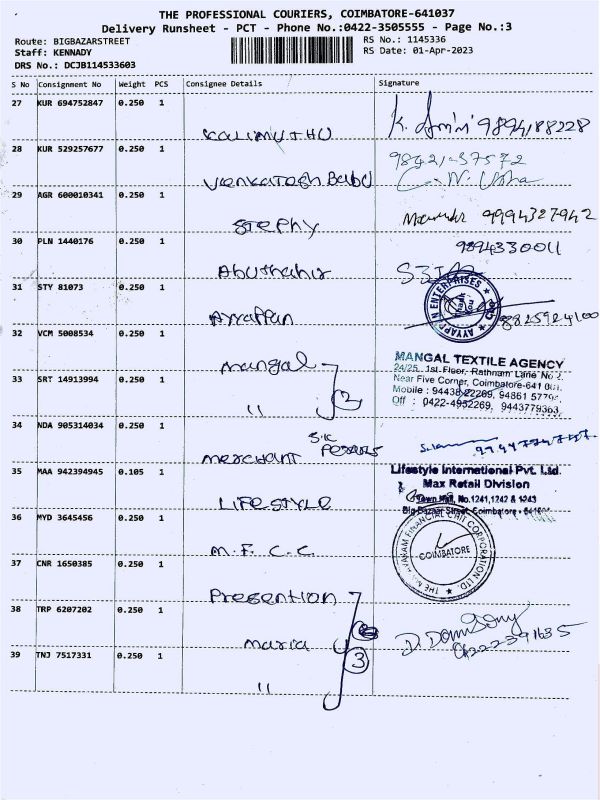 THE PROFESSIONAL COURIERS, COIMBATORE-641037
Delivery Runsheet - PCT - Phone No.:0422-3505555 - Page No.:3
Route: BIGBAZARSTREET
Staff: KENNADY
DRS No.: DCJB114533603
RS No.: 1145336
RS Date: 01-Apr-2023
S No Consignment No Weight PCS Consignee Details Signature
27 KUR 694752847 0.250 1
KALIMUTHU K. 9894188228
28 KUR 529257677 0.250 1
Venkatesh Babu 98421-37572
C. N. Usha
29 AGR 600010341 0.250 1
Stephy 9994327942
30 PLN 1440176 0.250 1 9894330011
Abuthahir
31 STY 81073 0.250 1
Ayyappan AYYAPPAN ENTERPRISES CBE 8825924100
32 VCM 5008534 0.250 1
mangal
33 SRT 14913994 0.250 1
" 2
MANGAL TEXTILE AGENCY
24/25, 1st Floor, Rathnam Lane No 2,
Near Five Corner, Coimbatore-641 001.
Mobile : 94438 22269, 94861
Off : 0422-4952269, 9443779363
34 NDA 905314034 0.250 1
merchant S.K
35 MAA 942394945 0.105 1
LIFESTYLE
Lifestyle International Pvt. Ltd.
Max Retail Division
Town Hall, No.1241,1242 & 1243
Big Bazaar Street, Coimbatore -
36 MYD 3645456 0.250 1
M.F.C.C
FINANCIAL CHIT CORPORATION LTD.
COIMBATORE
37 CNR 1650385 0.250 1
Presention
38 TRP 6207202 0.250 1
maria 3
39 TNJ 7517331 0.250 1
"